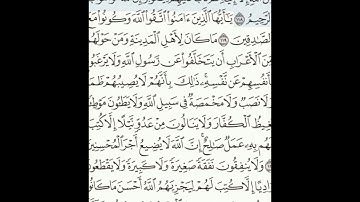 ٱلرَّحِيمُ ١١٨ يَٰٓأَيُّهَا ٱلَّذِينَ ءَامَنُوا۟ ٱتَّقُوا۟ ٱللَّهَ وَكُونُوا۟ مَعَ
ٱلصَّٰدِقِينَ ١١٩ مَا كَانَ لِأَهْلِ ٱلْمَدِينَةِ وَمَنْ حَوْلَهُم
مِّنَ ٱلْأَعْرَابِ أَن يَتَخَلَّفُوا۟ عَن رَّسُولِ ٱللَّهِ وَلَا يَرْغَبُوا۟
بِأَنفُسِهِمْ عَن نَّفْسِهِۦ ذَٰلِكَ بِأَنَّهُمْ لَا يُصِيبُهُمْ ظَمَأٌ
وَلَا نَصَبٌ وَلَا مَخْمَصَةٌ فِى سَبِيلِ ٱللَّهِ وَلَا يَطَـُٔونَ مَوْطِئًا
يَغِيظُ ٱلْكُفَّارَ وَلَا يَنَالُونَ مِنْ عَدُوٍّ نَّيْلًا إِلَّا كُتِبَ
لَهُم بِهِۦ عَمَلٌ صَٰلِحٌ إِنَّ ٱللَّهَ لَا يُضِيعُ أَجْرَ ٱلْمُحْسِنِينَ
وَلَا يُنفِقُونَ نَفَقَةً صَغِيرَةً وَلَا كَبِيرَةً وَلَا يَقْطَعُونَ
وَادِيًا إِلَّا كُتِبَ لَهُمْ لِيَجْزِيَهُمُ ٱللَّهُ أَحْسَنَ مَا كَانُوا۟